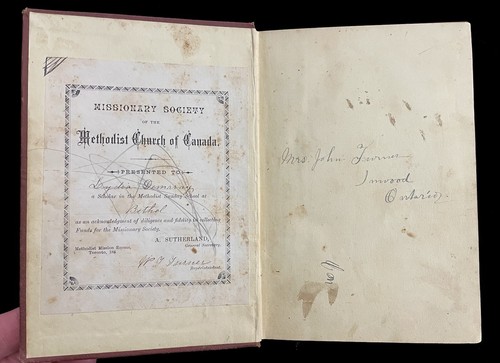 MISSIONARY SOCIETY
OF THE
Methodist Church of Canada.
PRESENTED TO
Lydia Demaray
a Scholar in the Methodist Sunday School at
Bethel
as an acknowledgment of diligence and fidelity in collecting
Funds for the Missionary Society.
A. SUTHERLAND,
General Secretary.
Methodist Mission Rooms,
Toronto, 188
W. F. Turner
Superintendent.
Mrs John Turner
Inwood
Ontario